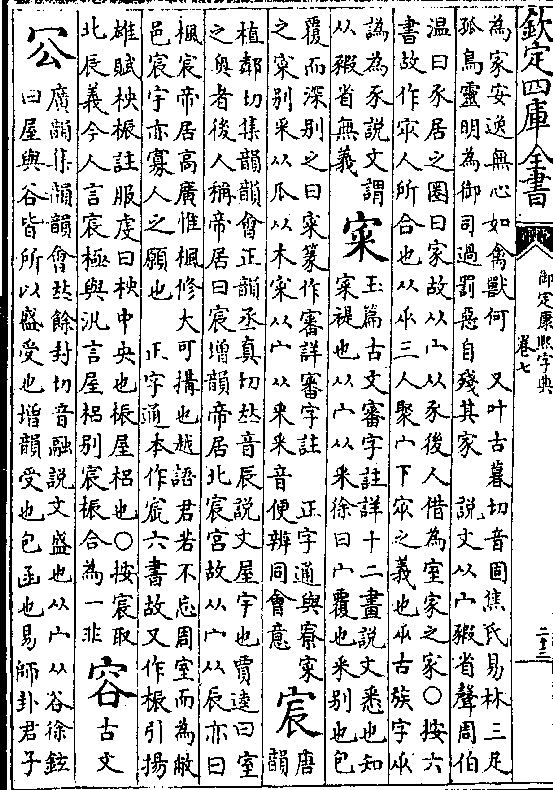 欽定四庫全書
御定康熙字典
卷七
二十三
為家安逸無心如禽獸何　又叶古暮切音固焦氏易林三足
孤鳥靈明為御司過罰惡自殘其家　說文从宀豭省聲周伯
温曰豕居之圈曰家故从宀从豕後人借為室家之家○按六
書故作𠖔人所合也从乑三人聚宀下𠖔之義也乑古族字乑
譌為豕說文謂
从豭省無義
宷
玉篇古文審字註詳十二畫說文悉也知
宷禔也从宀从釆徐曰宀覆也釆别也包
覆而深别之曰宷篆作審詳審字註　正字通與寮寀
之寀别采从爪从木宷从宀从釆釆音便辨同會意
宸
唐
韻
植鄰切集韻韻會正韻丞真切𠀤音辰說文屋宇也賈逵曰室
之奥者後人稱帝居曰宸增韻帝居北宸宮故从宀从辰亦曰
楓宸帝居高廣惟楓修大可搆也越語君若不忘周室而為敝
邑宸宇亦寡人之願也　正字通本作宸六書故又作桭引揚
雄賦柍桭註服虔曰柍中央也桭屋梠也○按宸取
北辰義今人言宸極與汎言屋梠别宸桭合為一非
容
古文
㝐
廣韻集韻韻會𠀤餘封切音融說文盛也从宀从谷徐鉉
曰屋與谷皆所以盛受也增韻受也包函也易師卦君子